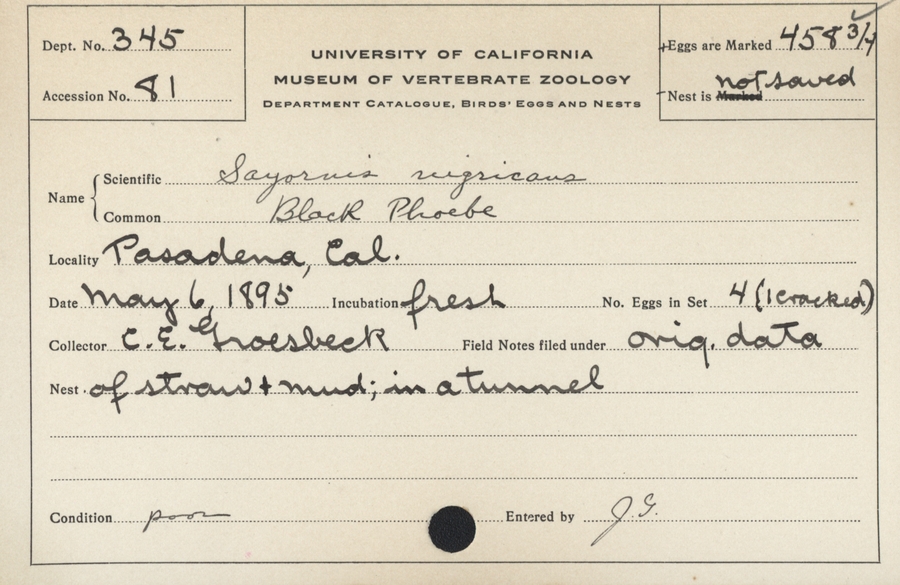 Dept. No. 345
Accession No. 81
UNIVERSITY OF CALIFORNIA
MUSEUM OF VERTEBRATE ZOOLOGY
DEPARTMENT CATALOGUE, BIRDS' EGGS AND NESTS
Eggs are Marked 458 3/4
Nest is Marked not saved
Name
Scientific Sayornis nigricans
Common Black Phoebe
Locality Pasadena, Cal.
Date May 6, 1895 Incubation fresh No. Eggs in Set 4 (1 cracked)
Collector C. E. Groesbeck Field Notes filed under orig. data
Nest of straw + mud; in a tunnel
Condition poor Entered by J. G.